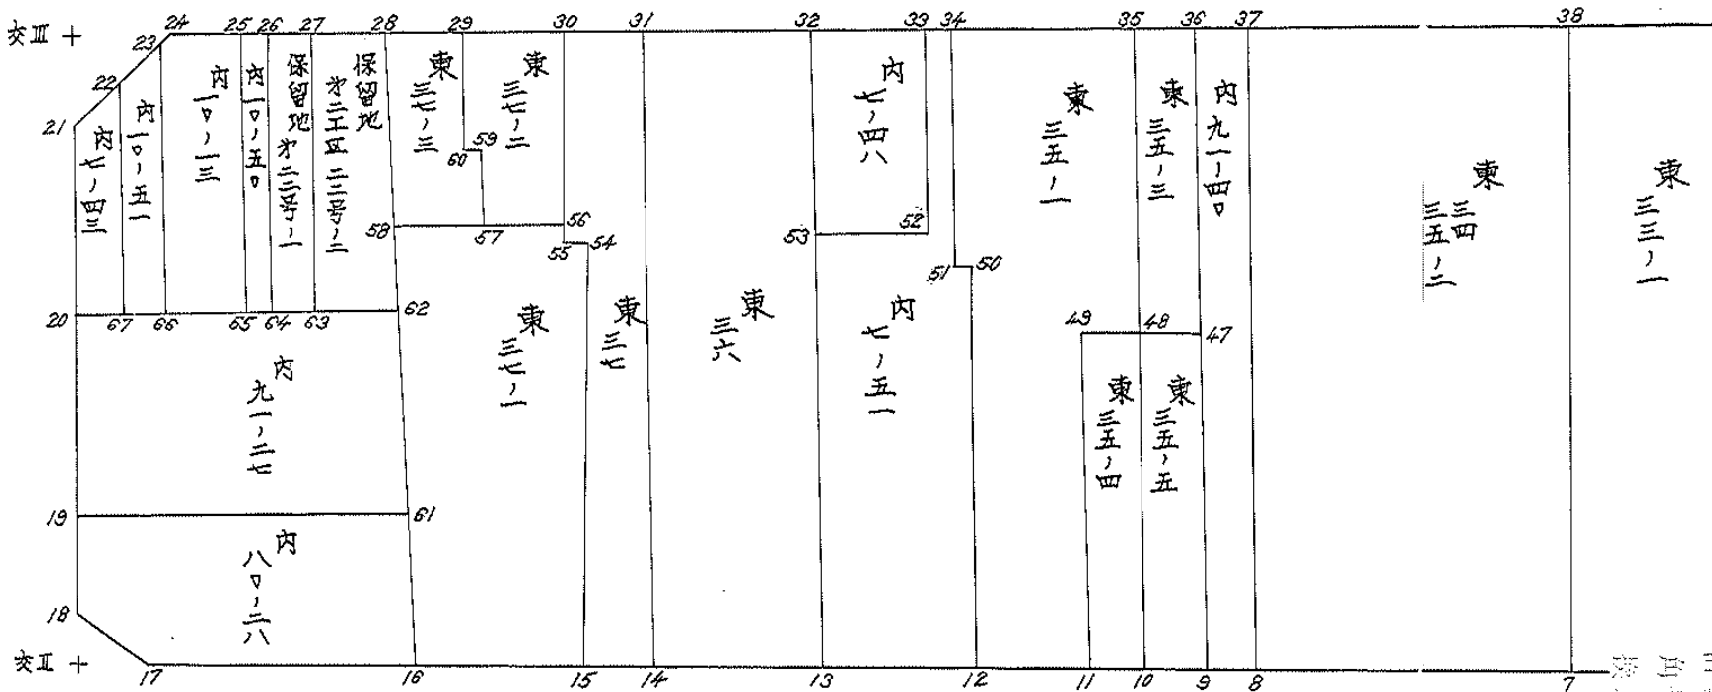 交Ⅲ +
24 25 26 27 28 29 30 31 32 33 34 35 36 37 38
23
22
21
内 七ノ四三
内 一〇ノ五一
内 一〇ノ一三
内 一〇ノ五〇
保留地 第二三号ノ一
保留地 第二工区 二三号ノ二
東 三七ノ三
東 三七ノ二
60 59
58 57 56
55 54
内 七ノ四八
53 52
51 50
東 三五ノ一
東 三五ノ三
内 九一ノ四〇
49 48 47
東 三四 三五ノ二
東 三三ノ一
20 67 66 65 64 63 62
内 九一ノ二七
東 三七ノ一
東 三七
東 三六
内 七ノ五一
東 三五ノ四
東 三五ノ五
19 61
内 八〇ノ二八
18
交Ⅱ +
17 16 15 14 13 12 11 10 9 8 7